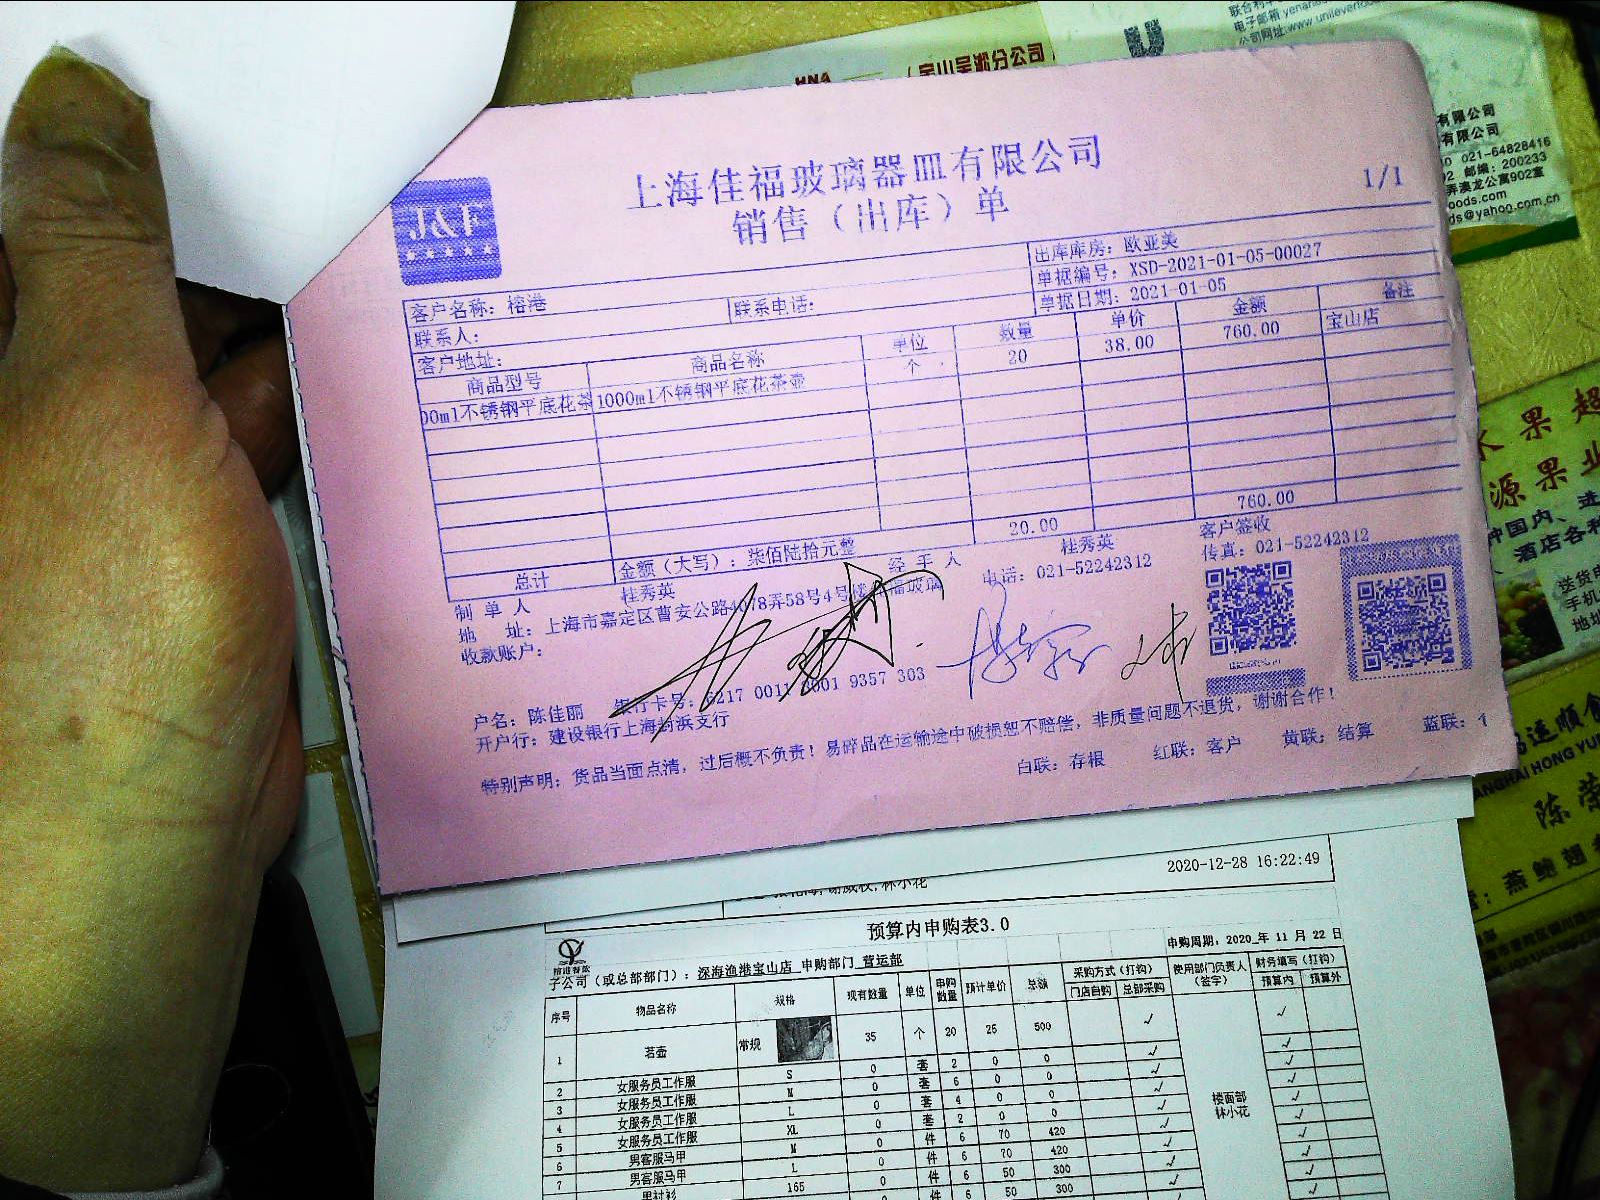 联合利华
电子邮箱
公司网址:www.unilever
HNA
(宝山吴淞分公司
有限公司
有限公司
021-64828416
邮编: 200233
弄澳龙公寓902室
oods.com
ds@yahoo.com.cn
上海佳福玻璃器皿有限公司
1/1
销售（出库）单
出库库房: 欧亚美
单据编号: XSD-2021-01-05-00027
客户名称: 榕港 联系电话: 单据日期: 2021-01-05
联系人:
客户地址:
商品型号 商品名称 单位 数量 单价 金额 备注
00ml不锈钢平底花茶 1000ml不锈钢平底花茶壶 个 20 38.00 760.00 宝山店
20.00 760.00
总计 金额（大写）: 柒佰陆拾元整
制单人 桂秀英 经手人 桂秀英 客户签收
地 址: 上海市嘉定区曹安公路4078弄58号4号楼佳福玻璃 电话: 021-52242312 传真: 021-52242312
收款账户:
户名: 陈佳丽 银行卡号: 6217 0011 0001 9357 303
开户行: 建设银行上海封浜支行
特别声明: 货品当面点清, 过后概不负责! 易碎品在运输途中破损恕不赔偿, 非质量问题不退货, 谢谢合作!
白联: 存根 红联: 客户 黄联: 结算 蓝联:
水果超
源果业
种国内、进
酒店各种
送货电
手机
地址
鸿运顺食
ANGHAI HONG YUN
陈荣
燕鲍翅
2020-12-28 16:22:49
林小花
预算内申购表3.0
榕港餐饮
申购周期: 2020 年 11 月 22 日
子公司（或总部部门）: 深海渔港宝山店 申购部门 营运部
序号 物品名称 规格 现有数量 单位 申购数量 预计单价 总额 采购方式（打钩） 门店自购 总部采购 使用部门负责人（签字） 财务填写（打钩） 预算内 预算外
1 茗壶 常规 35 个 20 25 500 ✓ ✓
2 女服务员工作服 S 0 套 2 0 0 ✓ ✓
3 女服务员工作服 M 0 套 6 0 0 ✓ ✓
4 女服务员工作服 L 0 套 4 0 0 ✓ ✓
5 女服务员工作服 XL 0 套 2 0 0 ✓ ✓
6 男客服马甲 M 0 件 6 70 420 ✓ ✓
7 男客服马甲 L 0 件 6 70 420 ✓ ✓
男衬衫 165 0 件 6 50 300 ✓ ✓
件 6 50 300
楼面部
林小花